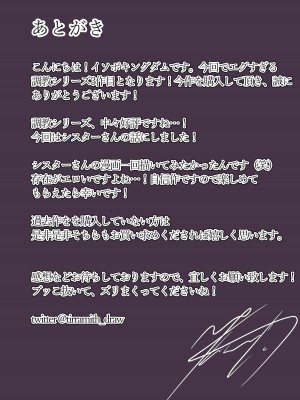 あとがき
こんにちは！イソボキングダムです。今回でエグすぎる
調教シリーズ3作目となります！今作を購入して頂き、誠に
ありがとうございます！
調教シリーズ、中々好評ですね…！
今回はシスターさんの話にしました！
シスターさんの漫画一回描いてみたかったんです（笑）
存在がエロいですよね…！自信作ですので楽しめて
もらえたら幸いです！
過去作をを購入していない方は
是非是非そちらもお買い求めくだされば嬉しく思います。
感想などお待ちしておりますので、宜しくお願い致します！
ブッこ抜いて、ズリまくってくださいね！
twitter@tirramith_draw